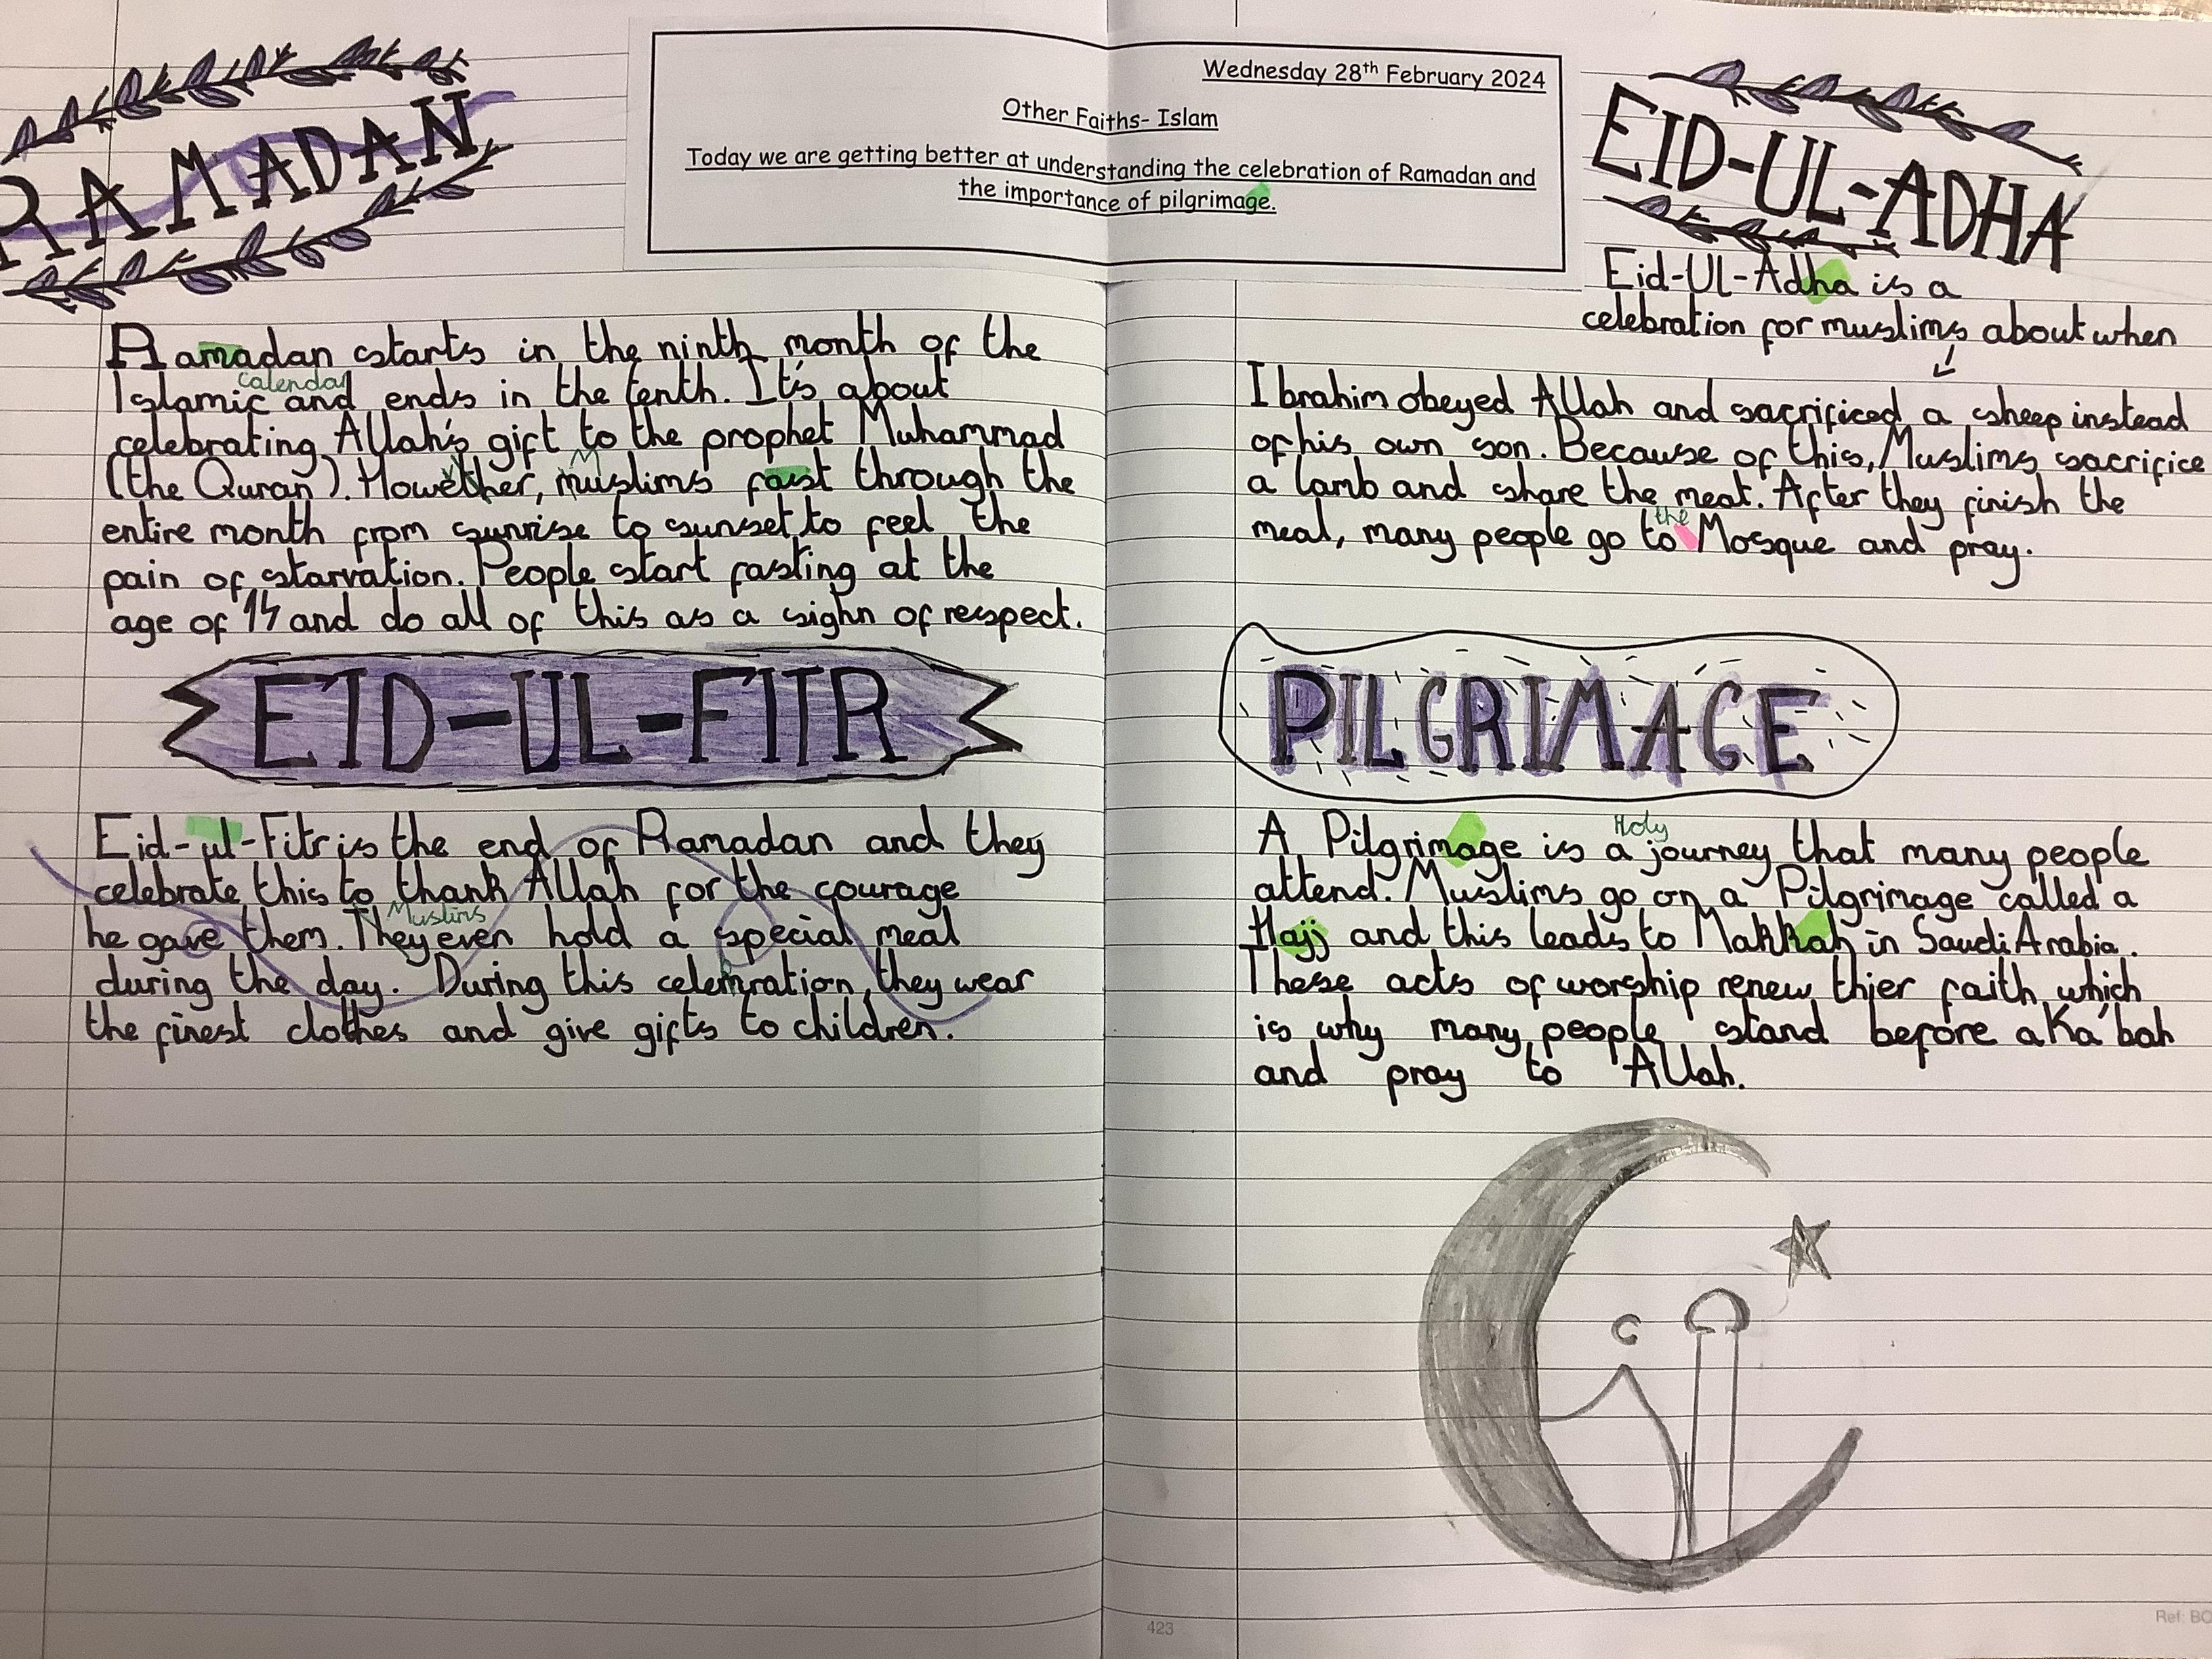 RAMADAN
Wednesday 28th February 2024
Other Faiths- Islam
Today we are getting better at understanding the celebration of Ramadan and
the importance of pilgrimage.
Ramadan starts in the ninth month of the
calendar
Islamic and ends in the tenth. It's about
celebrating Allah's gift to the prophet Muhammad
(the Quran). However, Muslims fast through the
entire month from sunrise to sunset to feel the
pain of starvation. People start fasting at the
age of 14 and do all of this as a sighn of respect.
EID-UL-FITR
Eid-ul-Fitr is the end of Ramadan and they
celebrate this to thank Allah for the courage
Muslims
he gave them. They even hold a special meal
during the day. During this celebration, they wear
the finest clothes and give gifts to children.
EID-UL-ADHA
Eid-Ul-Adha is a
celebration for muslims about when
Ibrahim obeyed Allah and sacrificed a sheep instead
of his own son. Because of this, Muslims sacrifice
a lamb and share the meat. After they finish the
the
meal, many people go to Mosque and pray.
PILGRIMAGE
Holy
A Pilgrimage is a journey that many people
attend. Muslims go on a Pilgrimage called a
Hajj and this leads to Makkah in Saudi Arabia.
These acts of worship renew thier faith, which
is why many people stand before a Ka'bah
and pray to Allah.
423
Ref: BO